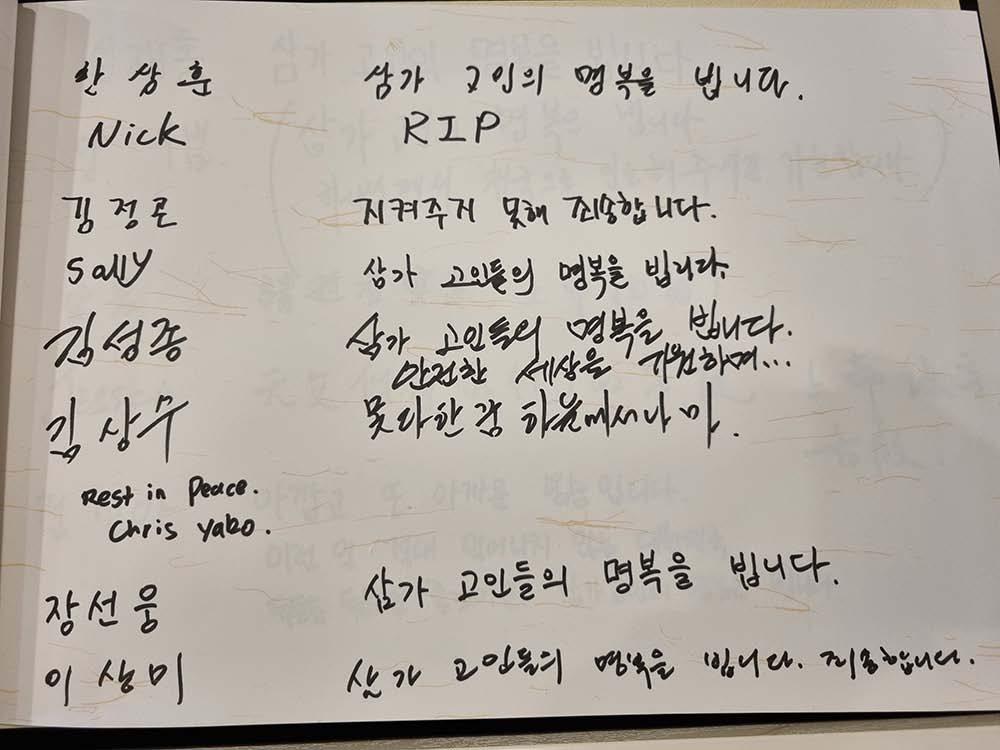 한상훈 삼가 고인의 명복을 빕니다.
Nick RIP
김정곤 지켜주지 못해 죄송합니다.
Sally 삼가 고인들의 명복을 빕니다.
김성종 삼가 고인들의 명복을 빕니다.
안전한 세상을 기원하며...
김상수 못다한 하늘에서나마.
Rest in Peace.
Chris Yabo.
장선웅 삼가 고인들의 명복을 빕니다.
이상미 삼가 고인들의 명복을 빕니다. 죄송합니다.